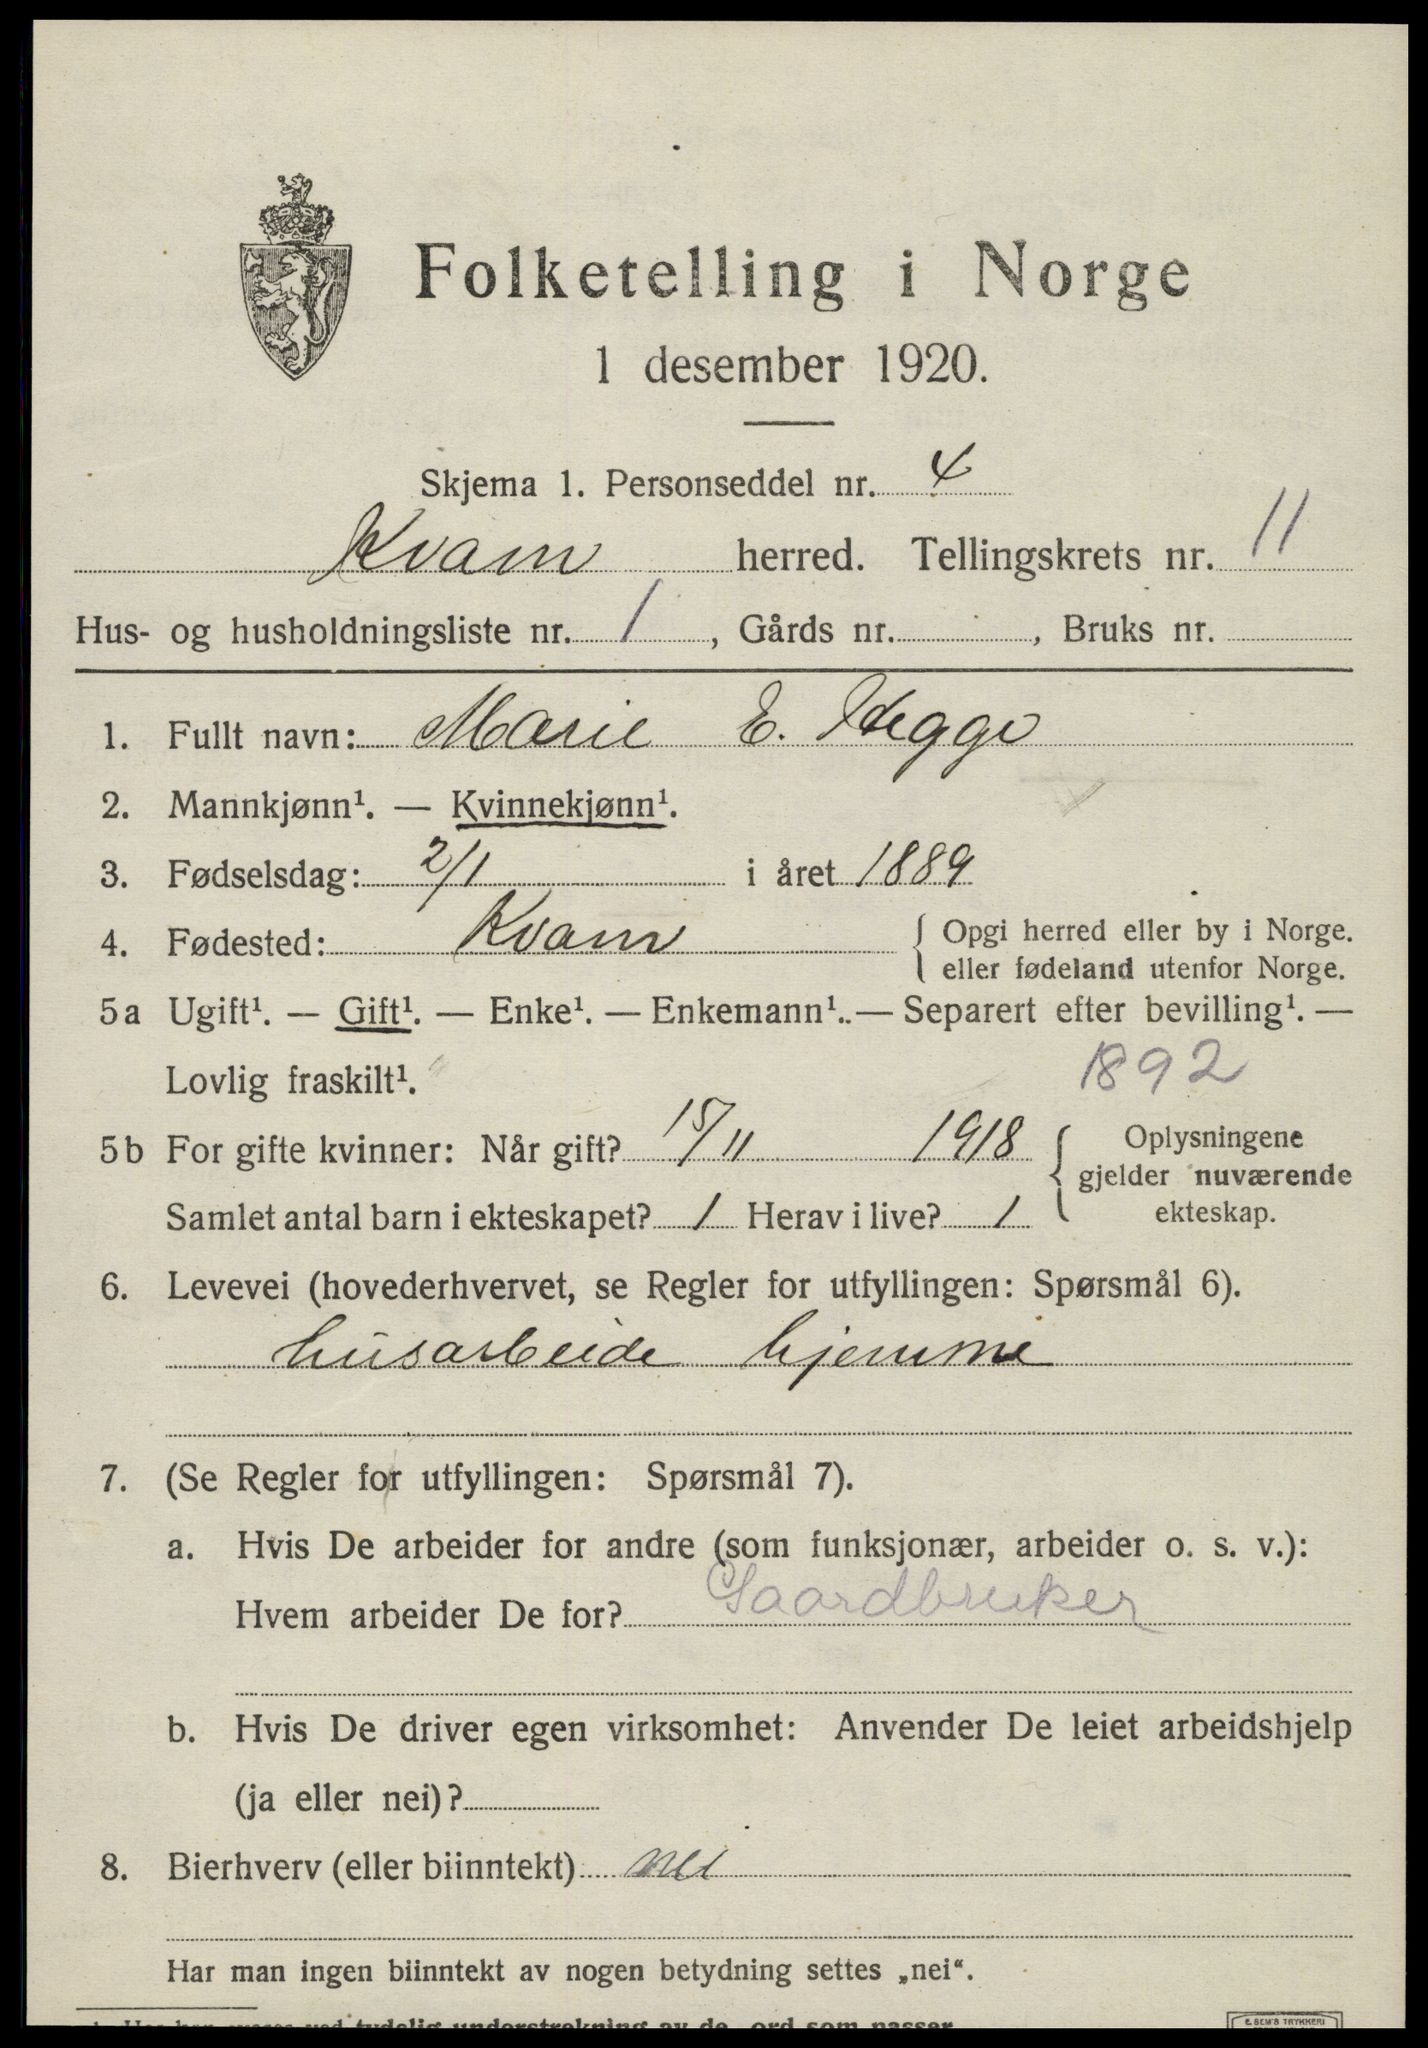 Folketelling i Norge
1 desember 1920.
Skjema 1. Personseddel nr. 4
Kvam herred. Tellingskrets nr. 11
Hus- og husholdningsliste nr. 1, Gårds nr. , Bruks nr.
1. Fullt navn: Marie E. Hegge
2. Mannkjønn¹. — Kvinnekjønn¹.
3. Fødselsdag: 2/1 i året 1889
4. Fødested: Kvam { Opgi herred eller by i Norge.
eller fødeland utenfor Norge.
5a Ugift¹. — Gift¹. — Enke¹. — Enkemann¹. — Separert efter bevilling¹. —
Lovlig fraskilt¹. 1892
5b For gifte kvinner: Når gift? 15/11 1918 { Oplysningene
gjelder nuværende
Samlet antal barn i ekteskapet? 1 Herav i live? 1 ekteskap.
6. Levevei (hovederhvervet, se Regler for utfyllingen: Spørsmål 6).
husarbeide hjemme
7. (Se Regler for utfyllingen: Spørsmål 7).
a. Hvis De arbeider for andre (som funksjonær, arbeider o. s. v.):
Hvem arbeider De for? Gaardbruker
b. Hvis De driver egen virksomhet: Anvender De leiet arbeidshjelp
(ja eller nei)?
8. Bierhverv (eller biinntekt) nei
Har man ingen biinntekt av nogen betydning settes „nei“.
tydelig understrekning av de ord som passer
E. SEM'S TRYKKERI